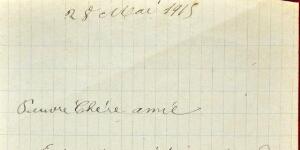 28 Mai 1915
Pauvre Chère amie